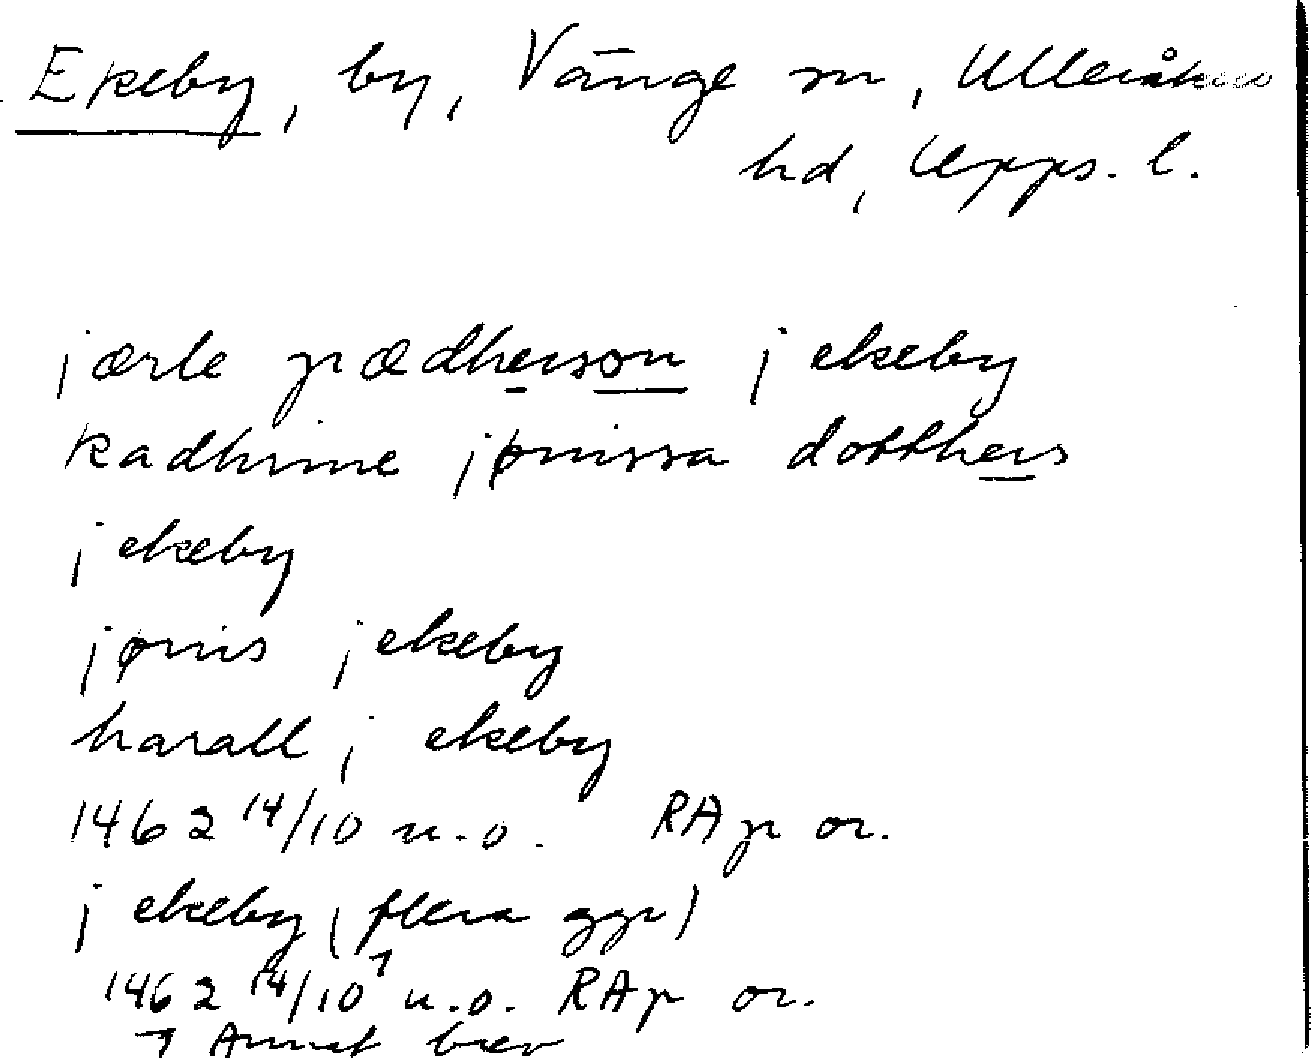 Ekeby, by, Vänge sn, Ulleråkers
hd, Upps. l.
j ærle pædherson j ekeby
kadhrine jønissa dotthers
j ekeby
jønis j ekeby
harall j ekeby
1462 14/10 u.o. RAp or.
j ekeby (flera ggr)
1462 14/10 ¹ u.o. RAp or.
¹ Annat brev